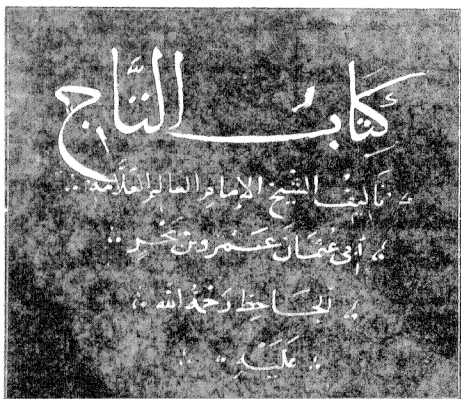 كتاب التاج
تأليف الشيخ الإمام العالم العلامة
أبي عثمان عمرو بن بحر
الجاحظ رحمة الله
عليه